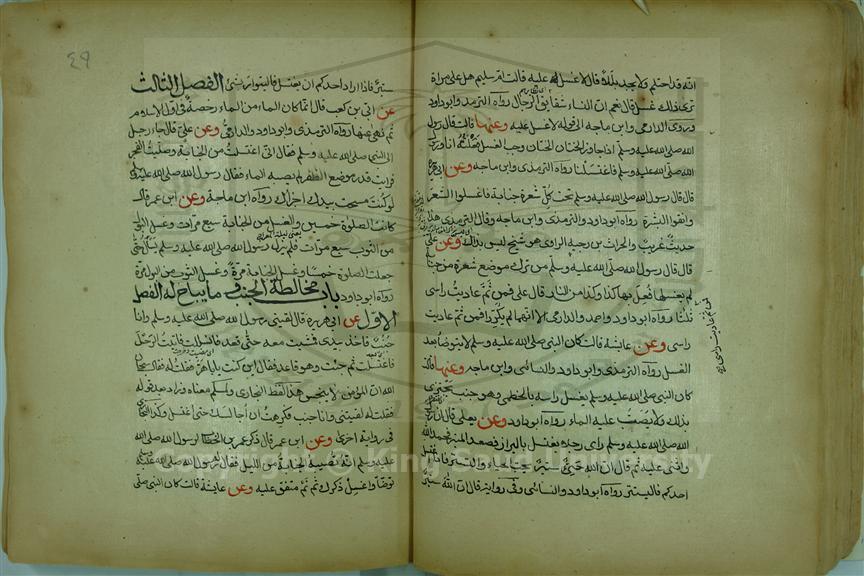 انه قد احتلم ولا يجد بللا قال لا غسل عليه قالت ام سليم هل على المراة
ترى ذلك غسل قال نعم ان النساء شقايق الرجال رواه الترمذى وابو داود
وروى الدارمى وابن ماجة الى قوله لا غسل عليه وعنها قالت قال رسول
الله صلى الله عليه وسلم اذا جاوز الختان الختان وجب الغسل فعلته انا ورسول
الله صلى الله عليه وسلم فاغتسلنا رواه الترمذى وابن ماجه وعن ابى هريرة
قال قال رسول الله صلى الله عليه وسلم تحت كل شعرة جنابة فاغسلوا الشعر
وانقوا البشرة رواه ابو داود والترمذى وابن ماجه وقال الترمذى هذا
حديث غريب والحارث بن وجيه الراوى هو شيخ ليس بذلك وعن على
قال قال رسول الله صلى الله عليه وسلم من ترك موضع شعرة من جنابة
لم يغسلها فعل بها كذا وكذا من النار قال على فمن ثم عاديت راسى
ثلثا رواه ابو داود واحمد والدارمى الا انهما لم يكررا فمن ثم عاديت
راسى وعن عايشة قالت كان النبى صلى الله عليه وسلم لا يتوضأ بعد
الغسل رواه الترمذى وابو داود والنسائى وابن ماجه وعنها قالت
كان النبى صلى الله عليه وسلم يغسل راسه بالخطمى وهو جنب يجتزى
بذلك ولا يصب عليه الماء رواه ابو داود وعن يعلى قال ان رسول
الله صلى الله عليه وسلم راى رجلا يغتسل بالبراز فصعد المنبر فحمد الله
واثنى عليه ثم قال ان الله حيى ستير يحب الحياء والتستر فاذا اغتسل
احدكم فليستتر رواه ابو داود والنسائى وفى روايته قال ان الله ستير
٤٩
ستير فاذا اراد احدكم ان يغتسل فليتوار بشئ الفصل الثالث
عن ابى بن كعب قال انما كان الماء من الماء رخصة فى اول الاسلام
ثم نهى عنها رواه الترمذى وابو داود والدارمى وعن على قال جاء رجل
الى النبى صلى الله عليه وسلم فقال انى اغتسلت من الجنابة وصليت الفجر
فرايت قدر موضع الظفر لم يصبه الماء فقال رسول الله صلى الله عليه وسلم
لو كنت مسحت بيدك اجزاك رواه ابن ماجة وعن ابن عمر قال
كانت الصلوة خمسين والغسل من الجنابة سبع مرات وغسل البول
من الثوب سبع مرات فلم يزل رسول الله صلى الله عليه وسلم يسأل حتى
جعلت الصلوة خمسا وغسل الجنابة مرة وغسل الثوب من البول مرة
رواه ابو داود باب مخالطة الجنب وما يباح له الفصل
الاول عن ابى هريرة قال لقينى رسول الله صلى الله عليه وسلم وانا
جنب فاخذ بيدى فمشيت معه حتى قعد فانسللت فاتيت الرحل
فاغتسلت ثم جئت وهو قاعد فقال اين كنت يا ابا هريرة فقلت له فقال سبحان
الله ان المؤمن لا ينجس هذا لفظ البخارى ولمسلم معناه وزاد بعد قوله
فقلت له لقيتنى وانا جنب فكرهت ان اجالسك حتى اغتسل وكذا البخارى
فى رواية اخرى وعن ابن عمر قال ذكر عمر بن الخطاب لرسول الله صلى الله
عليه وسلم انه تصيبه الجنابة من الليل فقال رسول الله صلى الله عليه وسلم
توضأ واغسل ذكرك ثم نم متفق عليه وعن عايشة قالت كان النبى صلى
Copyright © King Saud University